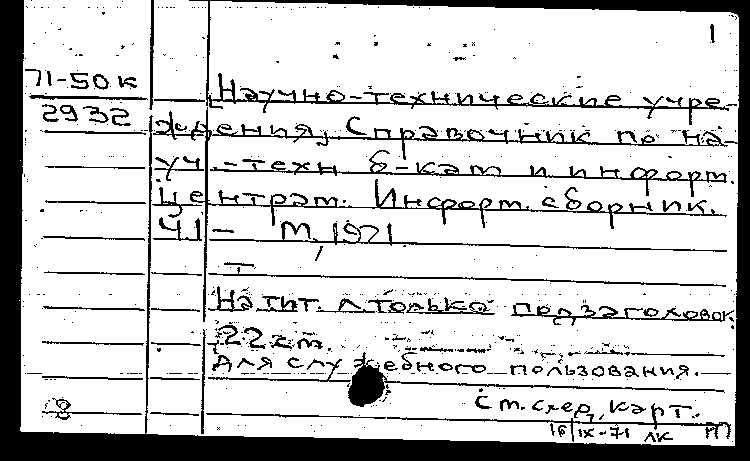 1
71-50к
2932
[Научно-технические учре-
ждения] Справочник по на-
уч.-техн б-кам и информ.
центрам. Информ. сборник.
Ч.1 - М., 1971.
На тит. л только подзаголовок.
22 см.
Для служебного пользования.
См. след. карт.
18/IX-71 ЛК